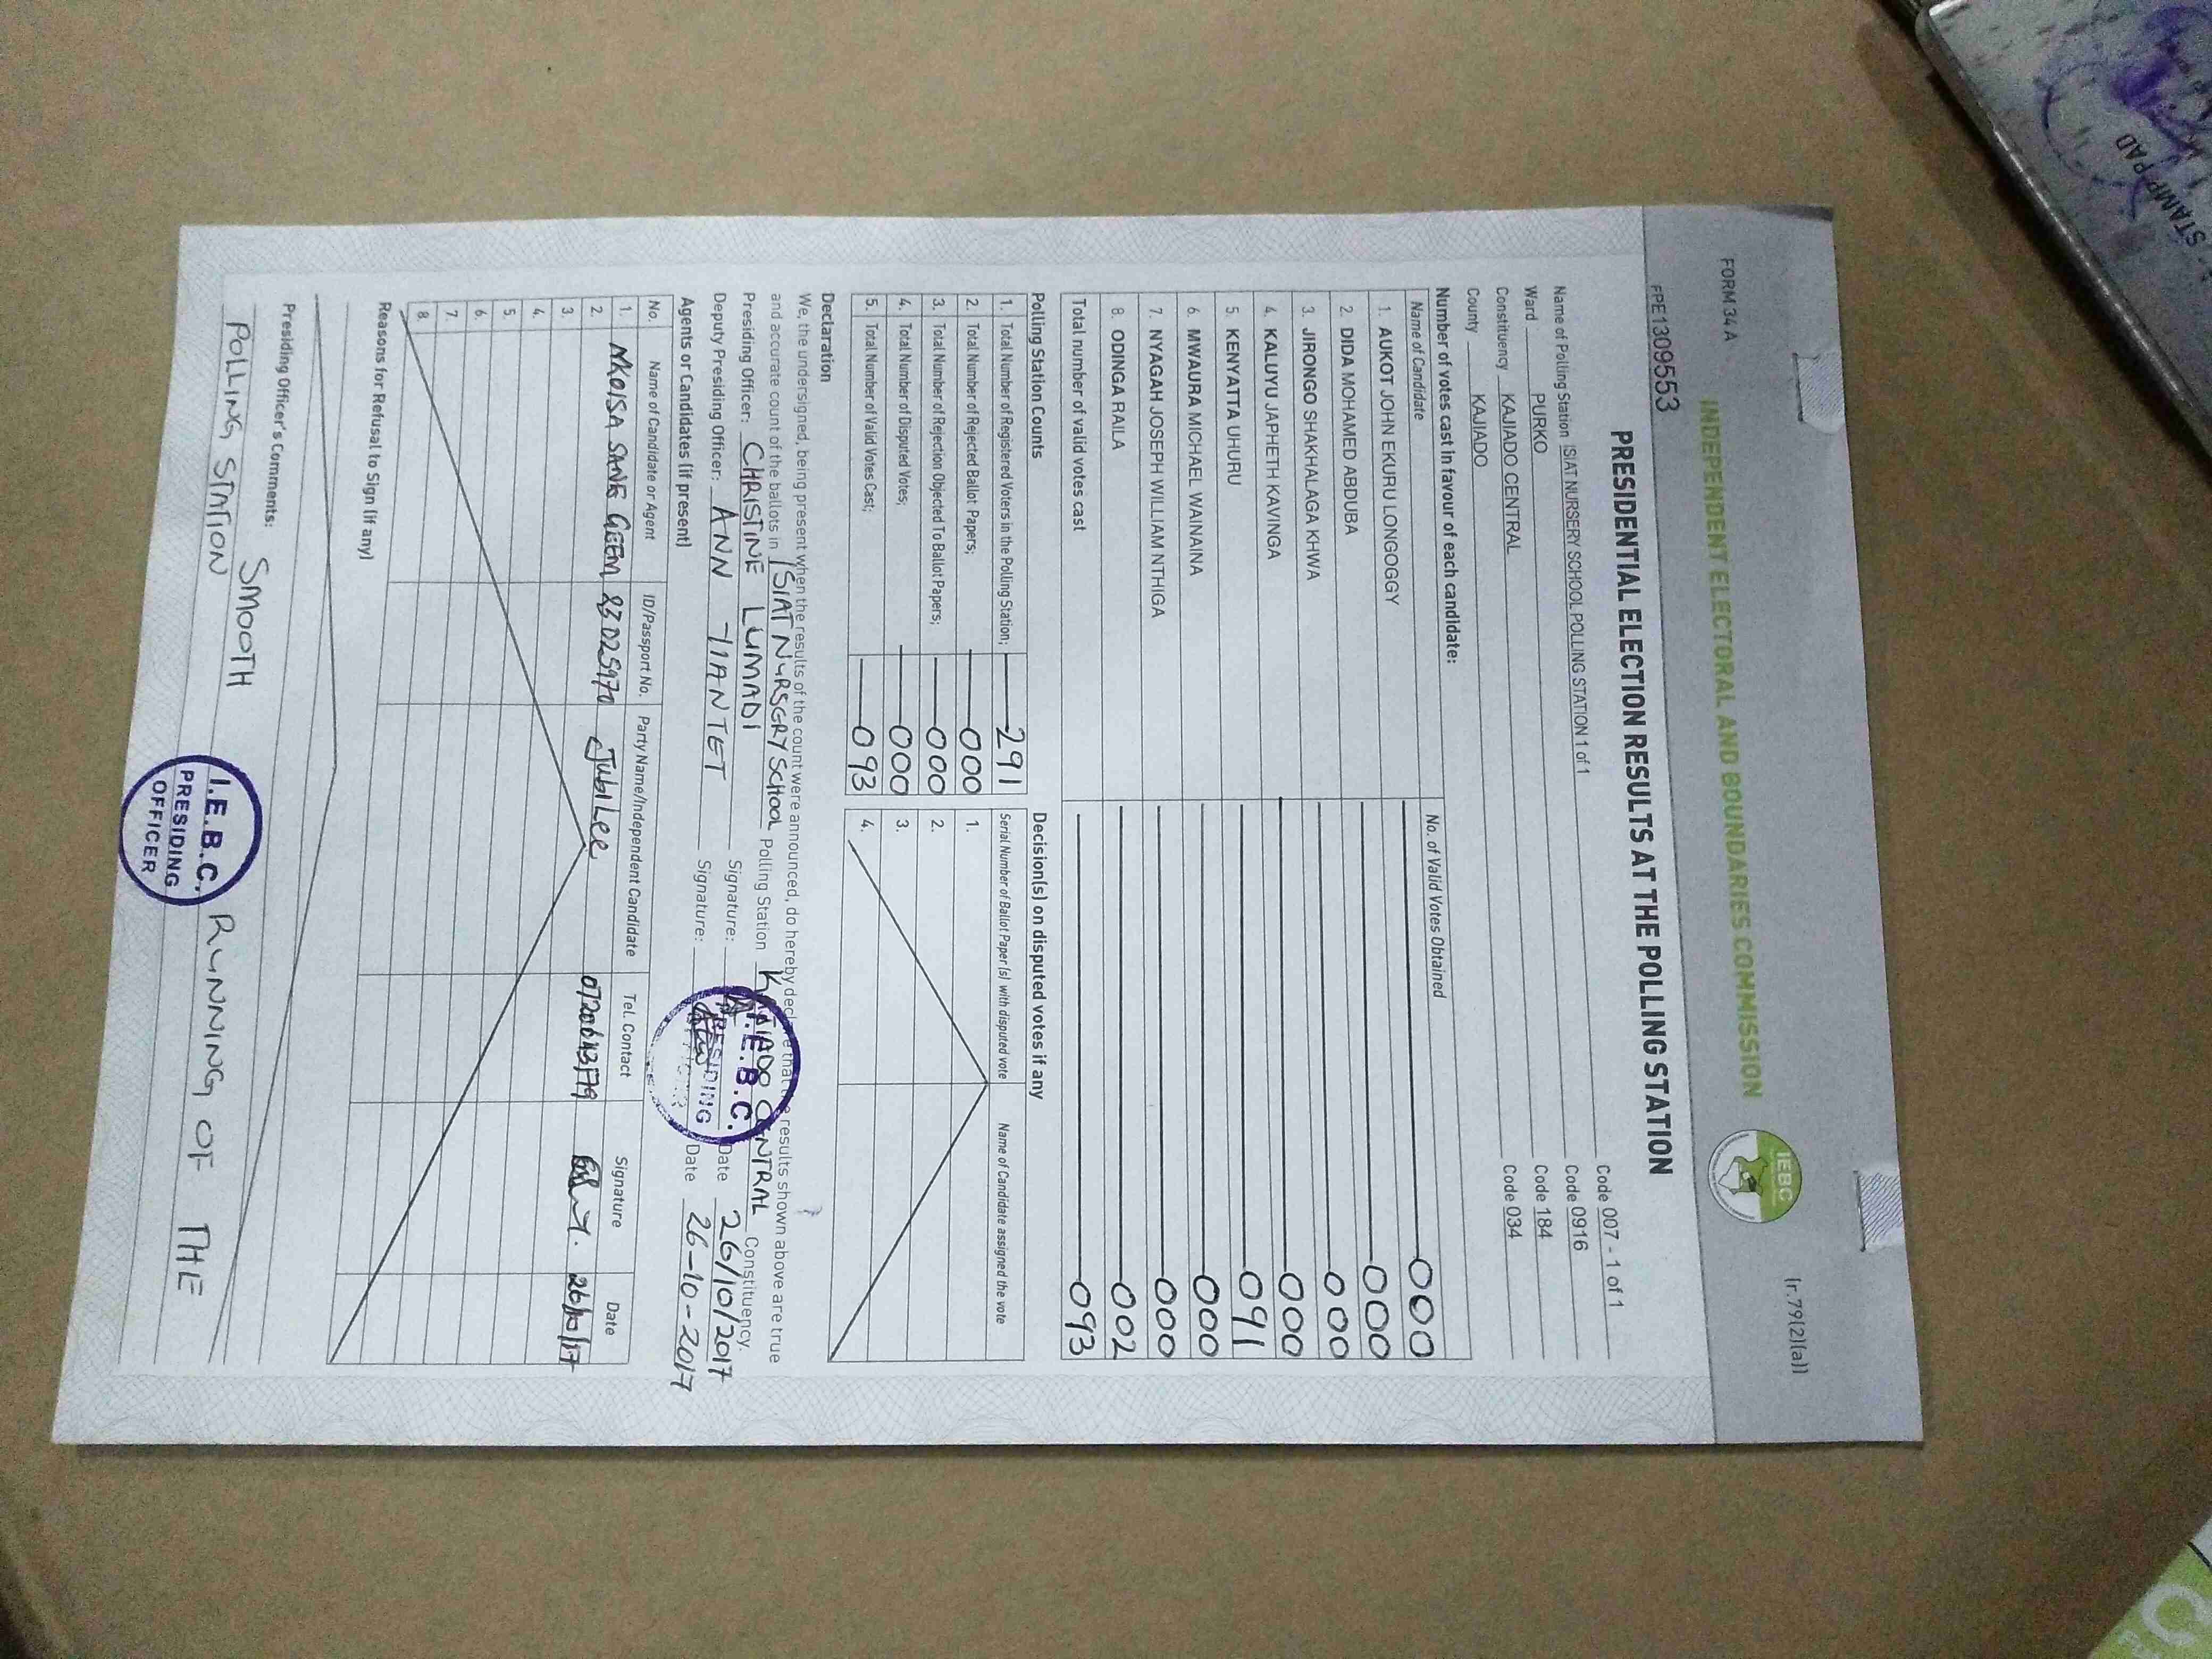 STAMP PAD
FORM 34 A
(r.79(2)(a))
INDEPENDENT ELECTORAL AND BOUNDARIES COMMISSION
IEBC
FPE1309553
PRESIDENTIAL ELECTION RESULTS AT THE POLLING STATION
Name of Polling Station ISIAT NURSERY SCHOOL POLLING STATION 1 of 1 Code 007 - 1 of 1
Ward PURKO Code 0916
Constituency KAJIADO CENTRAL Code 184
County KAJIADO Code 034
Number of votes cast in favour of each candidate:
Name of Candidate No. of Valid Votes Obtained
1. AUKOT JOHN EKURU LONGOGGY 000
2. DIDA MOHAMED ABDUBA 000
3. JIRONGO SHAKHALAGA KHWA 000
4. KALUYU JAPHETH KAVINGA 000
5. KENYATTA UHURU 091
6 MWAURA MICHAEL WAINAINA 000
7. NYAGAH JOSEPH WILLIAM NTHIGA 000
8. ODINGA RAILA 002
Total number of valid votes cast 093
Polling Station Counts
1. Total Number of Registered Voters in the Polling Station; 291
2. Total Number of Rejected Ballot Papers; 000
3. Total Number of Rejection Objected To Ballot Papers; 000
4. Total Number of Disputed Votes; 000
5. Total Number of Valid Votes Cast; 093
Decision(s) on disputed votes if any
Serial Number of Ballot Paper (s) with disputed vote Name of Candidate assigned the vote
1.
2.
3.
4.
Declaration
We, the undersigned, being present when the results of the count were announced, do hereby declare that the results shown above are true
and accurate count of the ballots in ISIAT NURSERY SCHOOL Polling Station KAJIADO CENTRAL Constituency.
Presiding Officer: CHRISTINE LUMADI Signature: Date 26/10/2017
Deputy Presiding Officer: ANN TIANTET Signature: Date 26-10-2017
I.E.B.C.
PRESIDING
Agents or Candidates (if present)
No. Name of Candidate or Agent ID/Passport No. Party Name/Independent Candidate Tel. Contact Signature Date
1. NKOISA SANE Jubilee 26/10/17
2.
3.
4.
5.
6.
7.
8.
Reasons for Refusal to Sign (if any)
Presiding Officer's Comments: SMOOTH RUNNING OF THE
POLLING STATION
I.E.B.C.
PRESIDING
OFFICER